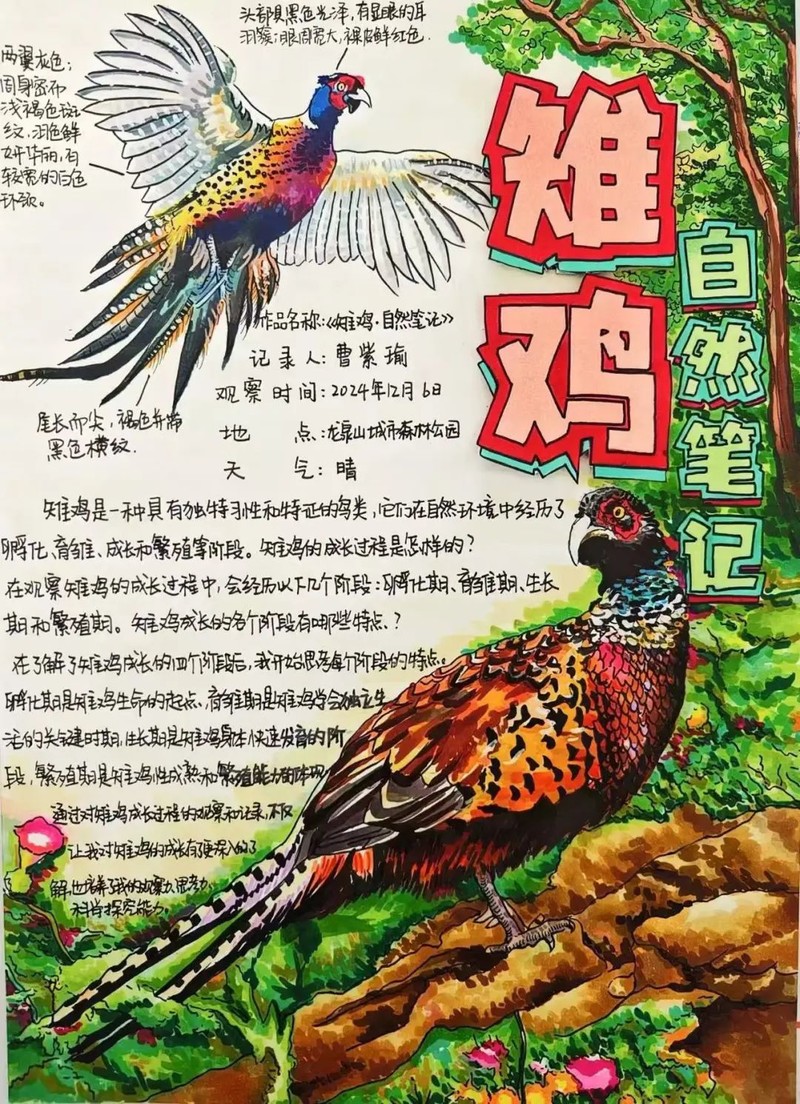 头部具黑色光泽,有显眼的耳
羽簇;眼周宽大,裸皮鲜红色.
两翼灰色;
周身密布
浅褐色斑
纹,羽色鲜
妍华丽,有
较宽的白色
环颈。
雉鸡
自然笔记
作品名称:《雉鸡·自然笔记》
记录人:曹紫瑜
观察时间:2024年12月6日
地点:龙泉山城市森林公园
天气:晴
尾长而尖,褐色并带
黑色横纹.
雉鸡是一种具有独特习性和特征的鸟类,它们在自然环境中经历了
孵化、育雏、成长和繁殖等阶段。雉鸡的成长过程是怎样的?
在观察雉鸡的成长过程中,会经历以下几个阶段:孵化期、育雏期、生长
期和繁殖期。雉鸡成长的各个阶段有哪些特点、?
在了解了雉鸡成长的四个阶段后,我开始思考每个阶段的特点。
孵化期是雉鸡生命的起点、育雏期是雉鸡学会独立生
活的关键时期,生长期是雉鸡身体快速发育的阶
段,繁殖期是雉鸡性成熟和繁殖能力的体现
通过对雉鸡成长过程的观察和记录,不仅
让我对雉鸡的成长有更深入的了
解,也培养了我的观察力、思考力、
科学探究能力。